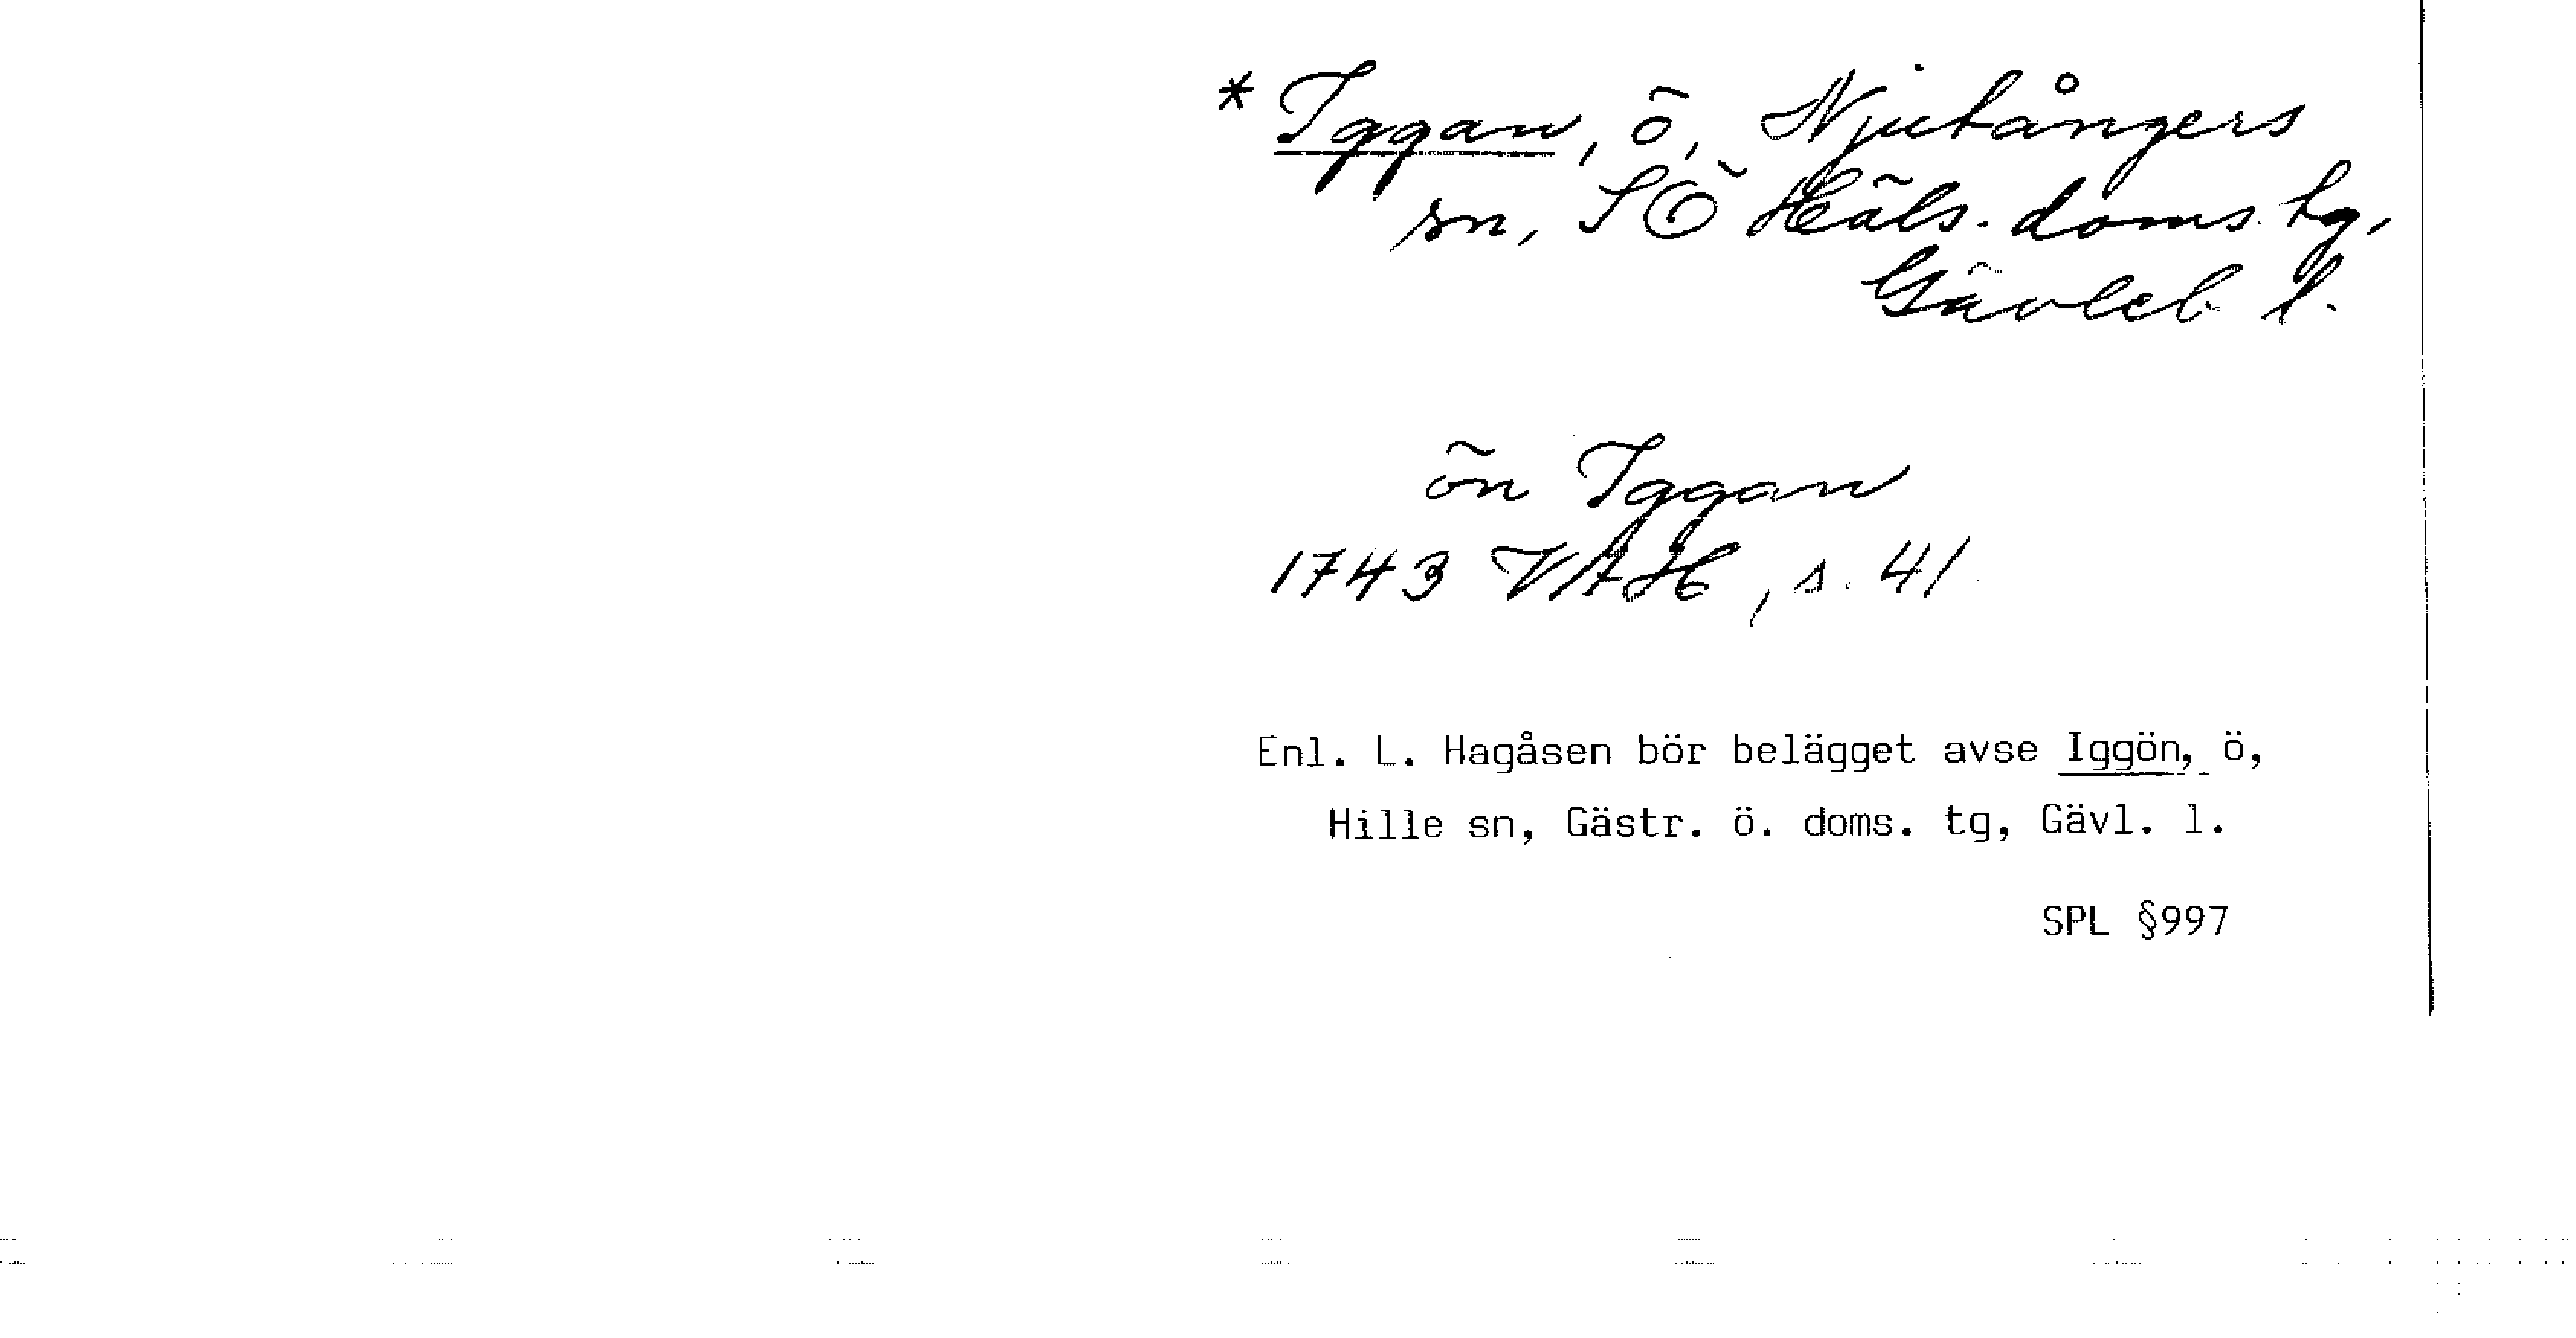 * Iggan, ö, Njutångers
sn, SÖ Häls. doms. tg,
Gävleb. l.
ön Iggan
1743 VAH, s. 41
Enl. L. Hagåsen bör belägget avse Iggön, ö,
Hille sn, Gästr. ö. doms. tg, Gävl. l.
SPL §997